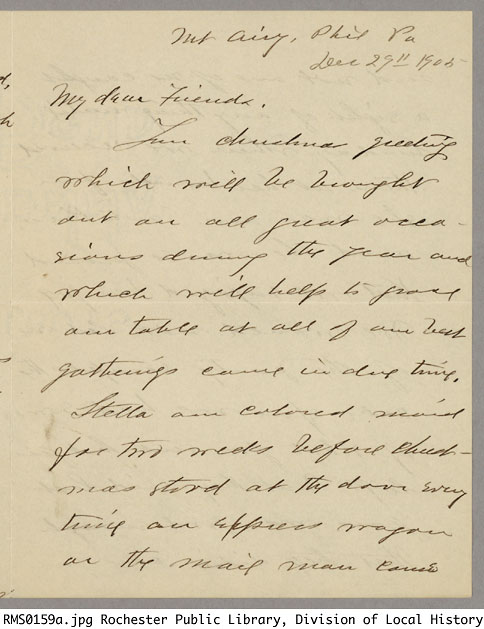 Mt Airy, Phil Pa
Dec 29" 1905
My dear Friends.
Your christmas greeting
which will be brought
out on all great occa-
sions during the year and
which will help to grace
our table at all of our best
gatherings came in due time.
Stella our colored maid
for two weeks before christ-
mas stood at the door every
time an express wagon
or the mail man came
RMS0159a.jpg Rochester Public Library, Division of Local History